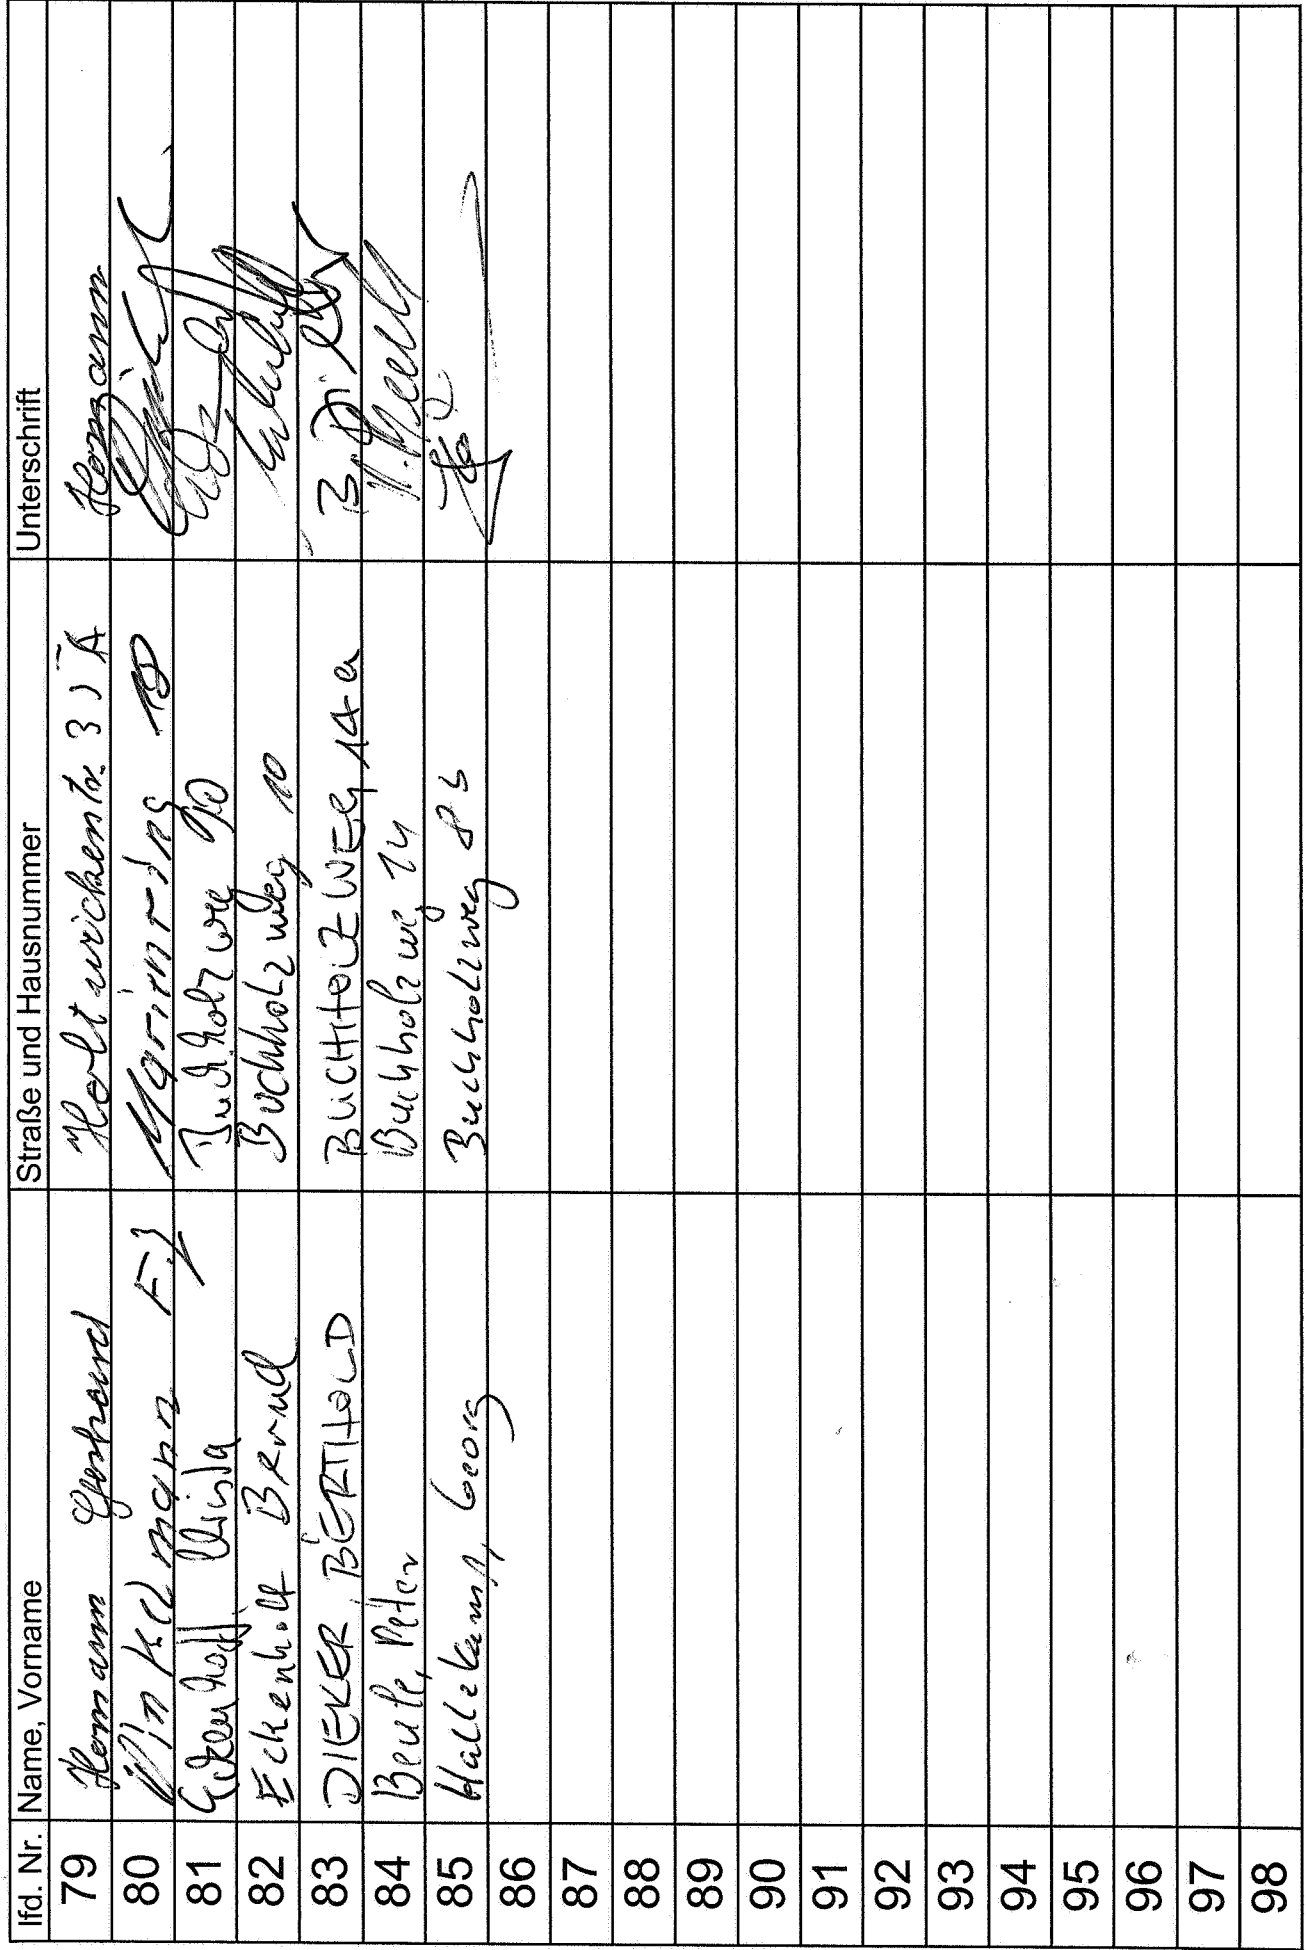 lfd. Nr. Name, Vorname Straße und Hausnummer Unterschrift
79 Homann Gerhard 3 Homann
80 Winkelmann F.J. Marienring 18
81 Eckenhoff 90
82 Eckenhoff Bernd Buchholzweg 10
83 DIEKER, BERTHOLD BUCHHOLZWEG 14a B. Dieker
84 Beule, Peter Buchholzweg 14
85 Hallekamp, Georg Buchholzweg 8b
86
87
88
89
90
91
92
93
94
95
96
97
98